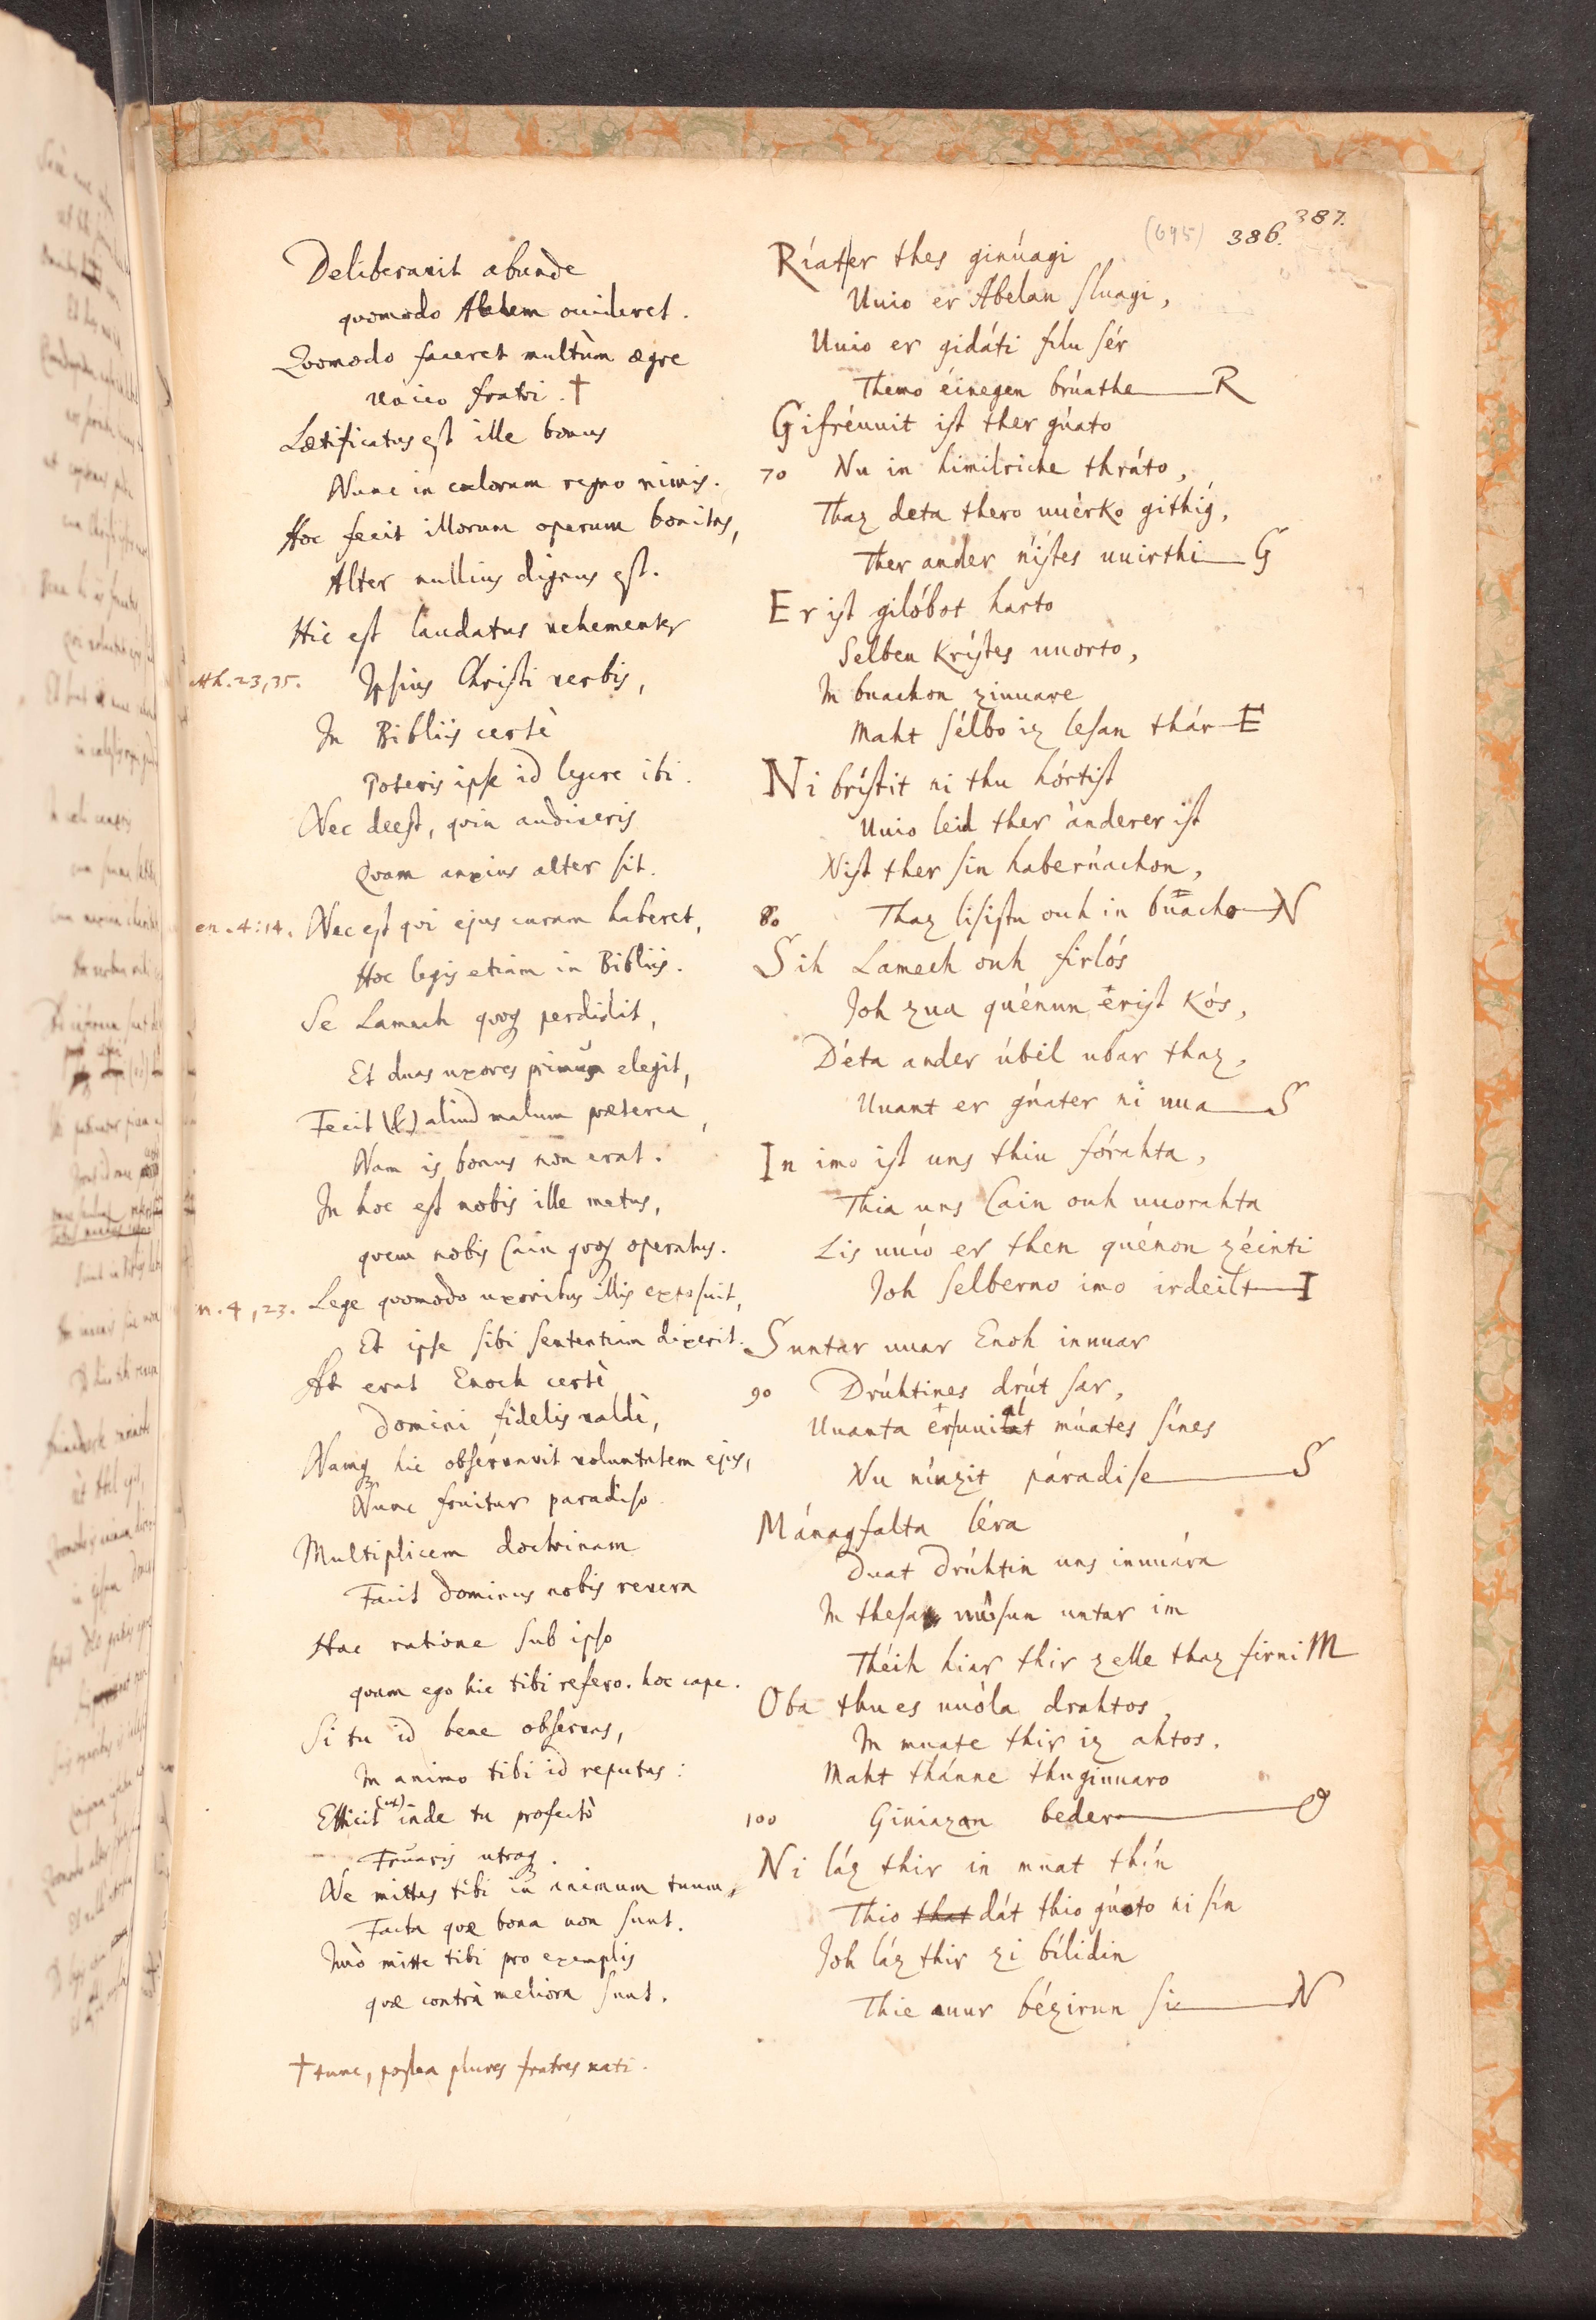 (695) 386. 387.
Deliberavit abunde
quomodo Abelem occideret.
Quomodo faceret multùm ægre
unico fratri. †
Lætificatus est ille bonus
Nunc in cælorum regno nimis.
Hoc fecit illorum operum bonitas,
Alter nullius dignus est.
Hic est laudatus vehementer
Mt. 23, 35. Ipsius Christi verbis,
In Bibliis certè
Poteris ipse id legere ibi.
Nec deest, quin audiveris
Quam anxius alter sit.
en. 4:14. Nec est qui ejus curam haberet,
Hoc legis etiam in Bibliis.
Se Lamech quoq perdidit,
Et duas uxores primus elegit,
Fecit (&) aliud malum præterea,
Nam is bonus non erat.
In hoc est nobis ille metus,
quem nobis Cain quoq operatus.
n. 4, 23. Lege quomodo uxoribus illis exposuit,
Et ipse sibi sententiam dixerit.
At erat Enoch certè
Domini fidelis valdè,
Namq hic observavit voluntatem ejus,
Nunc fruitur paradiso.
Multiplicem doctrinam
Facit Dominus nobis revera
Hac ratione sub ipso
quam ego hic tibi refero. hoc cape.
Si tu id bene observas,
In animo tibi id reputas:
Efficit (ut) inde tu profectò
Fruaris utroq.
Ne mittas tibi in animum tuum,
Facta quæ bona non sunt.
Imò mitte tibi pro exemplis
quæ contrà meliora sunt.
† tunc, postea plures fratres nati.
Ríater thes ginúagi
Uuio er Abelan sluagi,
Uuio er gidáti filu sér
Themo éinegen brúathe R
Gifréuuit ist ther gúato
70 Nu in himilriche thráto,
Thaz deta thero uuérko githig,
Ther ander nístes uuirthi G
Er ist gilóbot harto
Selben Krístes uuorto,
In buachon ziuuare
Maht sélbo iz lesan thár E
Ni brístit ni thu hórtist
Uuio leid ther ànderer ist
Nist ther sin haberúachon,
80 Thaz lisistu ouh in buacho N
Sih Lamech ouh firlós
Joh zua quénun erist Kós,
Déta ander úbil ubar thaz,
Uuant er gúater ni uua S
In imo ist uns thiu fórahta,
Thia uns Cain ouh uuorahta
Lis uuío er then quénon zéinti
Joh selbemo imo irdeilt I
Suntar uuar Enoh inuuar
90 Drúhtines drút sar,
Uuanta er fuuialt múates sínes
Nu níuzit páradise S
Mánagfalta léra
Duat Drúhtin uns inuuára
In thesa uuîsun untar im
Théih hiar thir zelle thaz firni M
Oba thu es uuóla drahtos,
In muate thir iz ahtos.
Maht thánne thu giuuaro
100 Giniazan beder O
Ni láz thir in muat thín
Thio that dát thio gúato ni sín
Joh láz thir zi bílidin
Thie auur bézirun si N